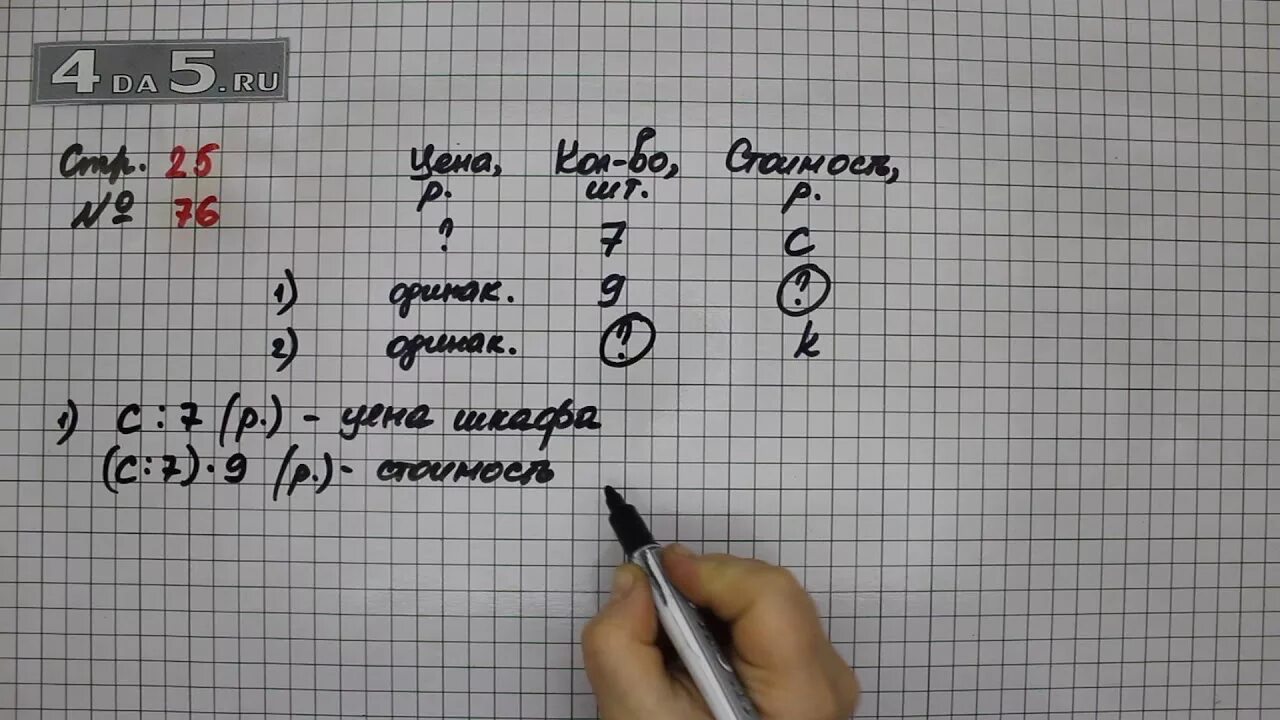 4DA5.RU
Стр. 25
№ 76
Цена, Кол-во, Стоимость,
р. шт. р.
? 7 с
1) одинак. 9 ?
2) одинак. ? k
1) с : 7 (р.) - цена шкафа
(с : 7) · 9 (р.) - стоимость